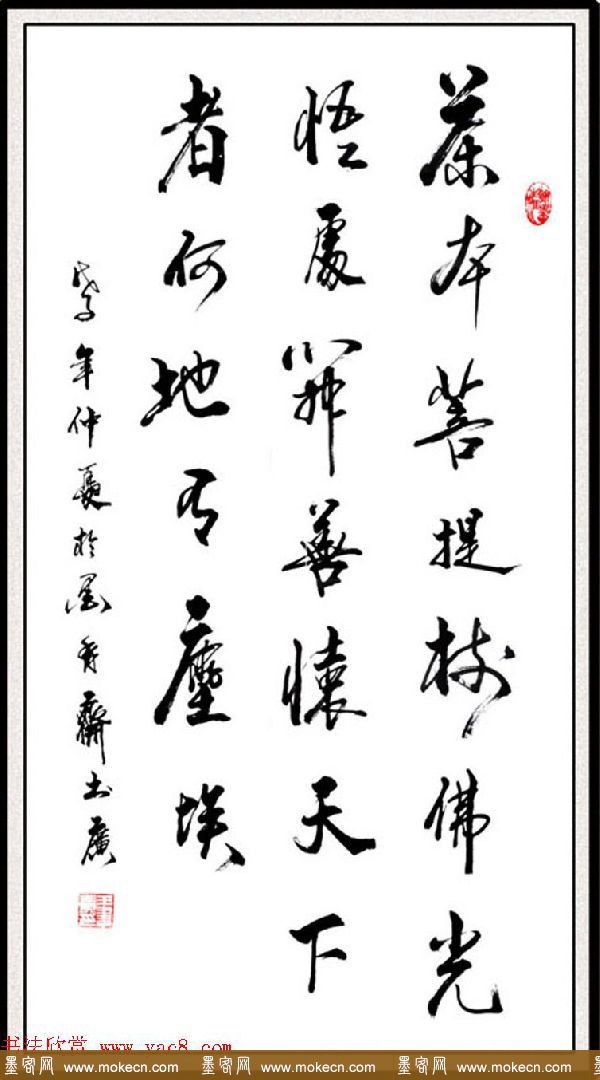 茶本菩提树佛光
悟處開善懷天下
者何地有塵埃
戊子年仲夏於墨香齋
书法欣赏 www.yac8.com
墨客网 www.mokecn.com 墨客网 www.mokecn.com 墨客网 www.mokecn.com